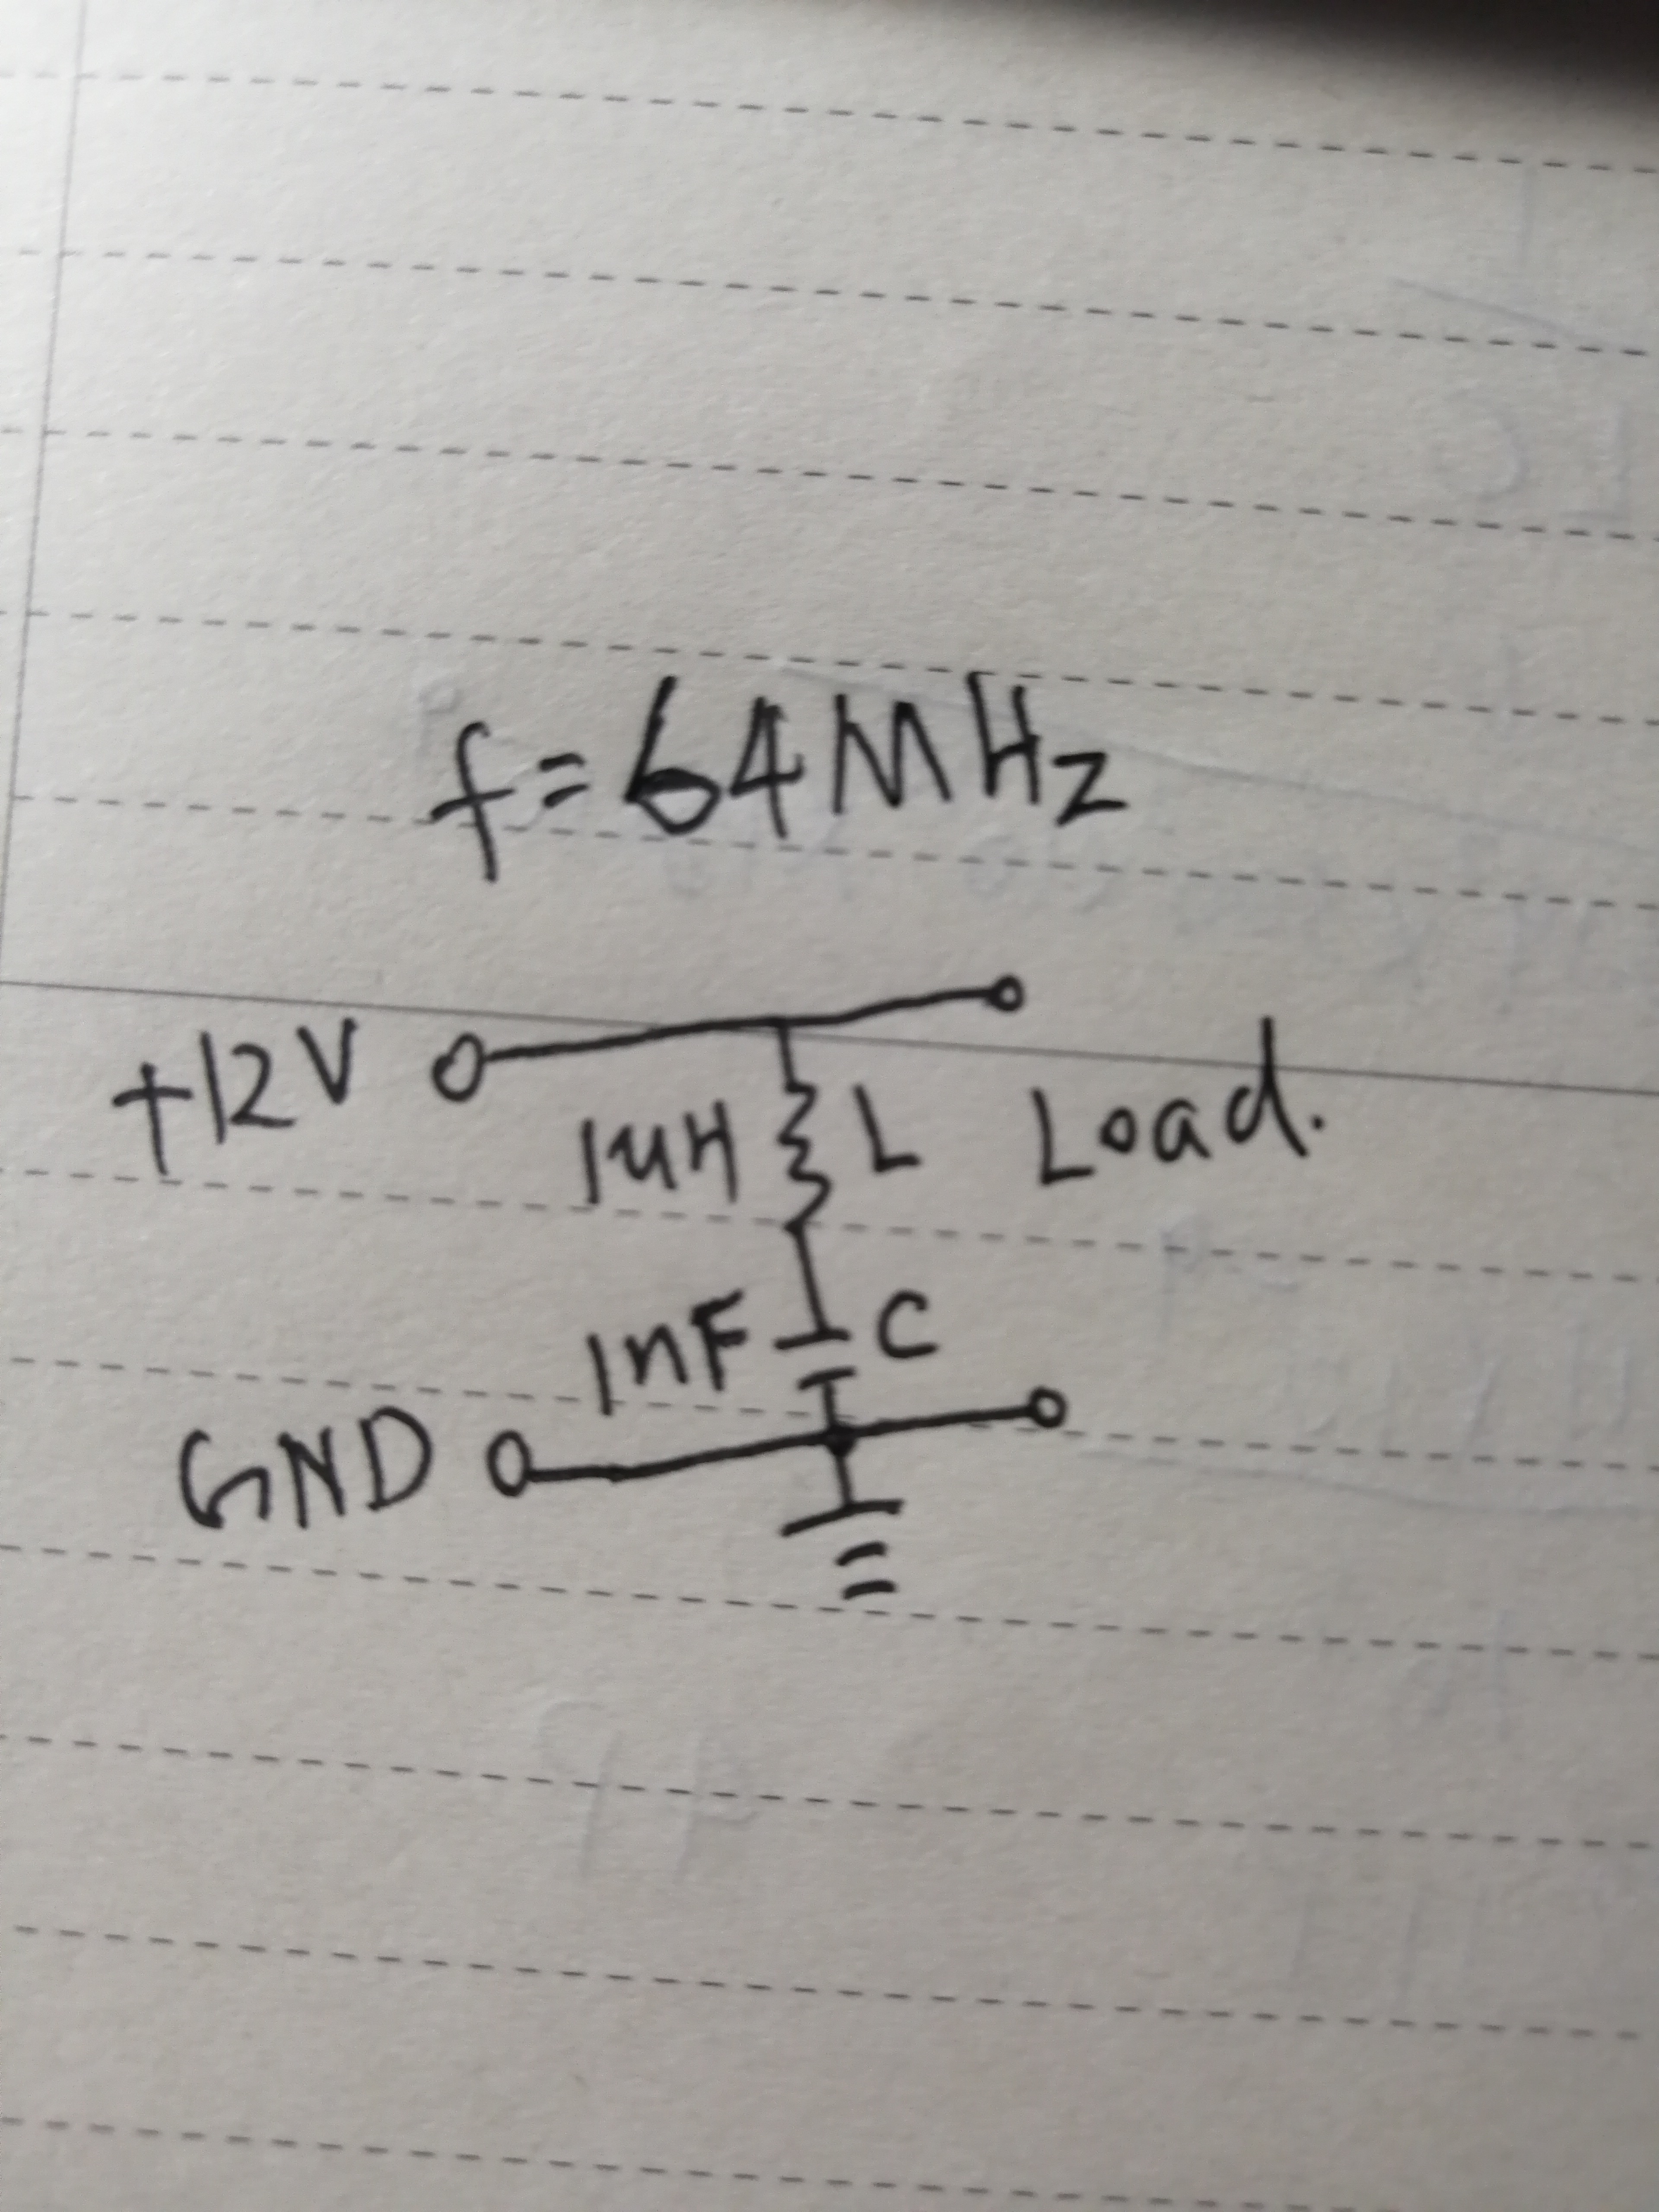 f=64MHz
+12V
1uH L Load.
1nF C
GND